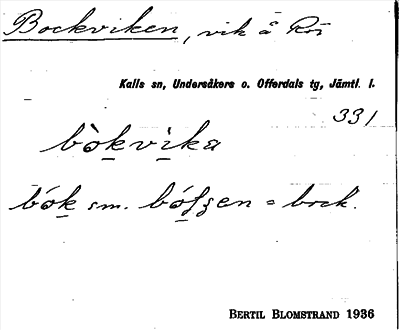 Bockviken, vik å Rö
Kalls sn, Undersåkers o. Offerdals tg, Jämtl. l.
331
bòkvika
bók sm. = bock.
BERTIL BLOMSTRAND 1936